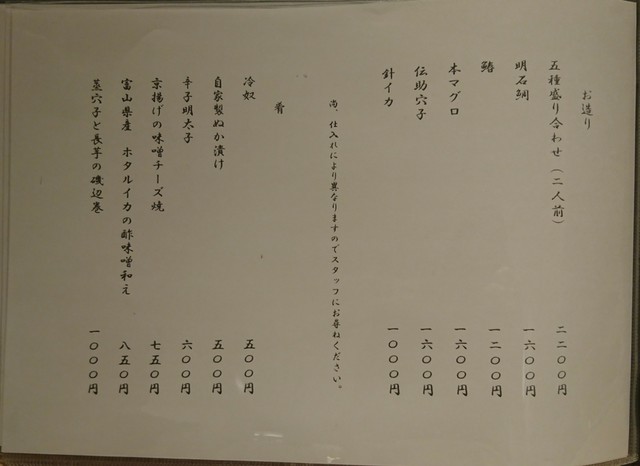 お造り
五種盛り合わせ（二人前） 二二〇〇円
明石鯛 一六〇〇円
鰆 一二〇〇円
本マグロ 一六〇〇円
伝助穴子 一六〇〇円
針イカ 一〇〇〇円
尚、仕入れにより異なりますのでスタッフにお尋ねください。
肴
冷奴 五〇〇円
自家製ぬか漬け 五〇〇円
辛子明太子 六〇〇円
京揚げの味噌チーズ焼 七五〇円
富山県産　ホタルイカの酢味噌和え 八五〇円
蒸穴子と長芋の磯辺巻 一〇〇〇円